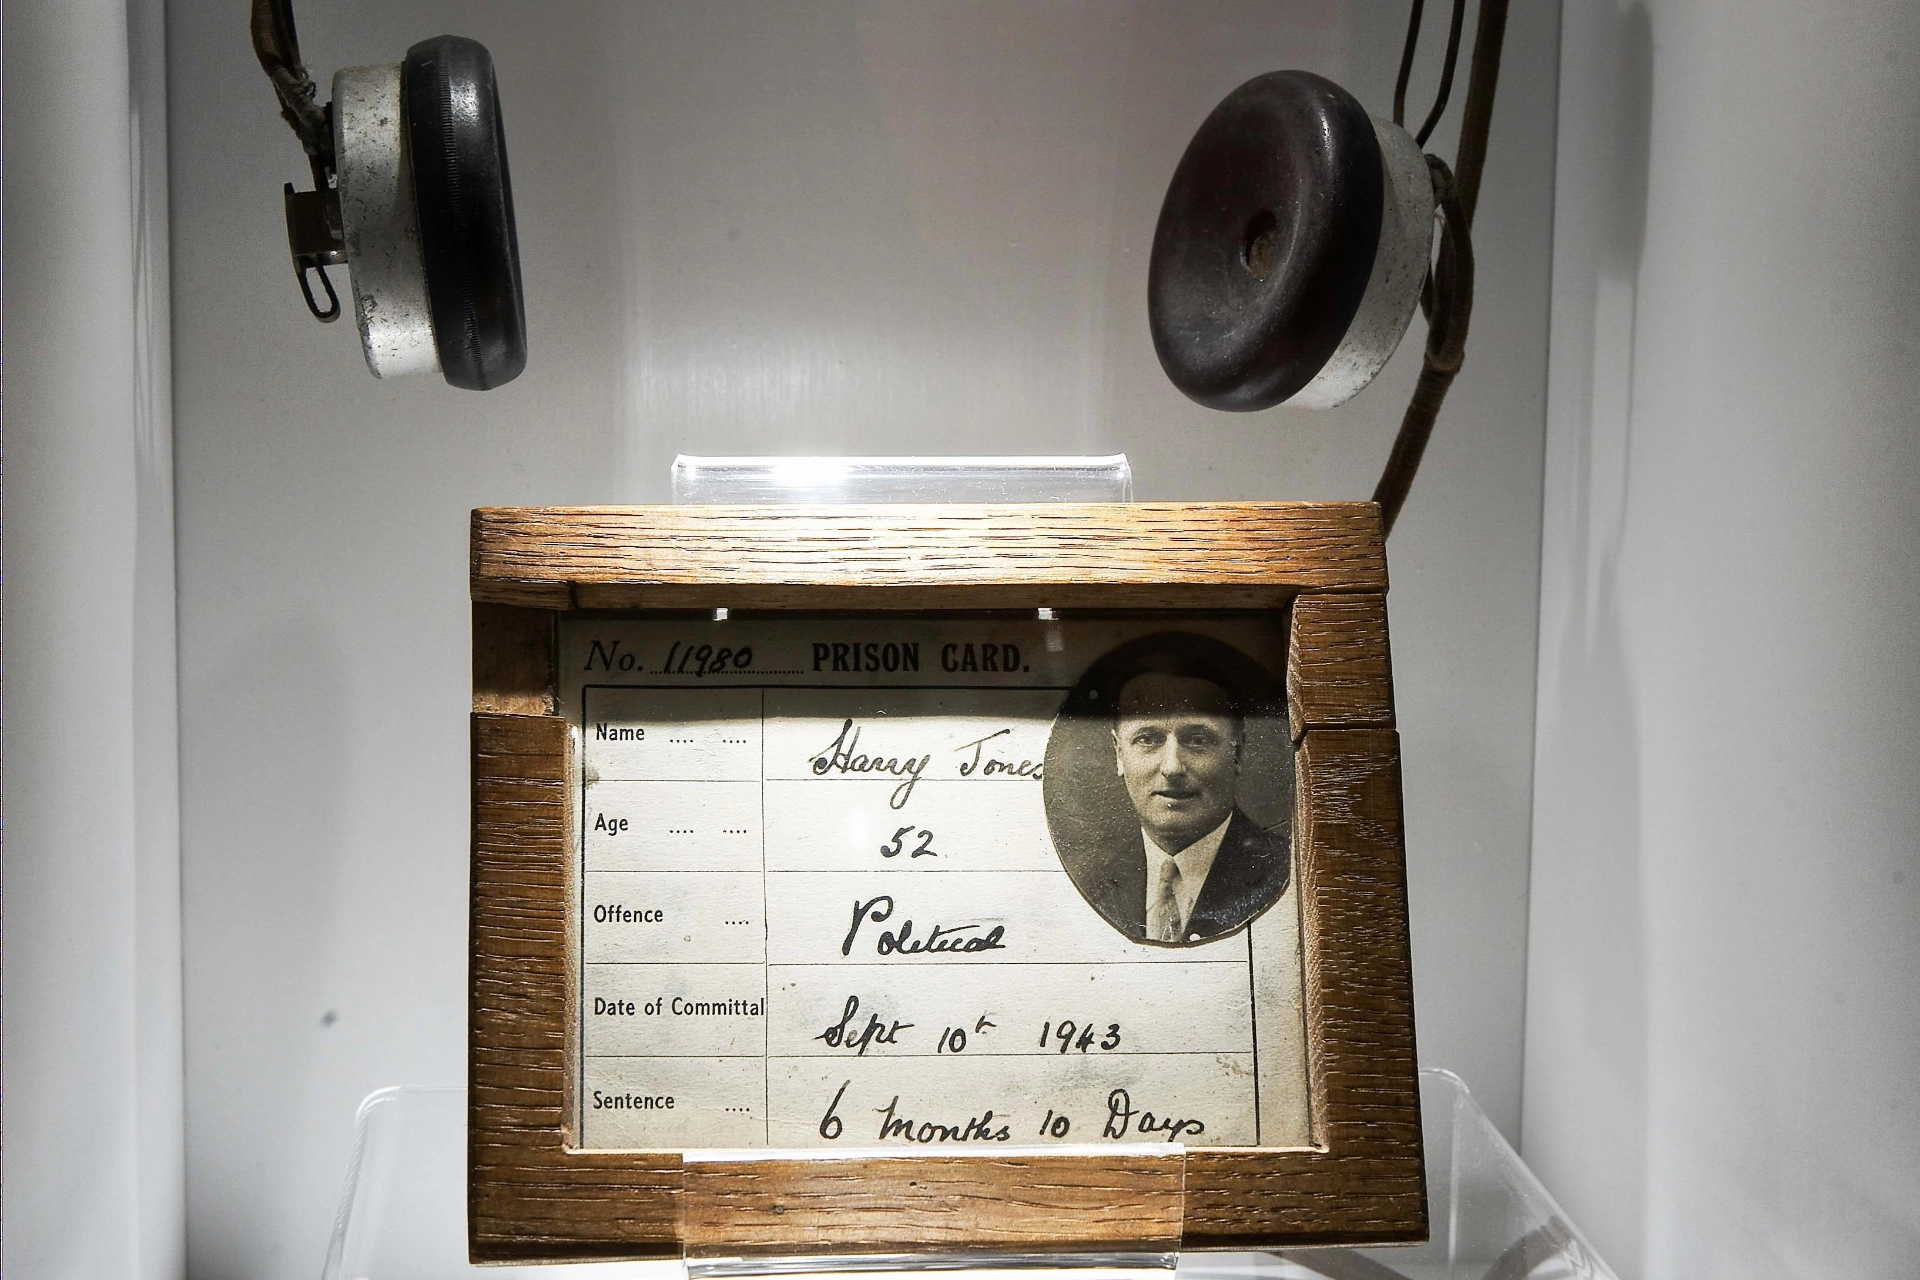 No. 11980 PRISON CARD.
Name .... .... Harry Jones
Age .... .... 52
Offence .... Political
Date of Committal Sept 10th 1943
Sentence .... 6 Months 10 Days